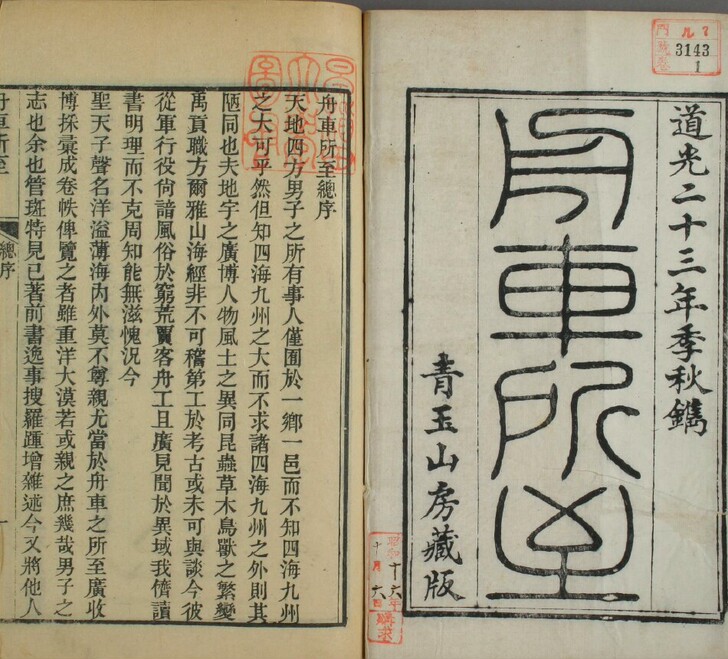 道光二十三年季秋鐫
舟車所至
青玉山房藏版
門 ル 7
號 3143
卷 1
昭和十六年
十月六日
購求
舟車所至總序
天地四方男子之所有事人僅囿於一鄉一邑而不知四海九州
之大可乎然但知四海九州之大而不求諸四海九州之外則其
陋同也夫地宇之廣博人物風土之異同昆蟲草木鳥獸之繁變
禹貢職方爾雅山海經非不可稽第工於考古或未可與談今彼
從軍行役尙諳風俗於窮荒賈客舟工且廣見聞於異域我儕讀
書明理而不克周知能無滋愧況今
聖天子聲名洋溢薄海內外莫不尊親尤當於舟車之所至廣收
博採彙成卷帙俾覽之者雖重洋大漠若或親之庶幾哉男子之
志也余也管斑特見已著前書逸事搜羅踵增雜述今又將他人
舟車所至
總序
一